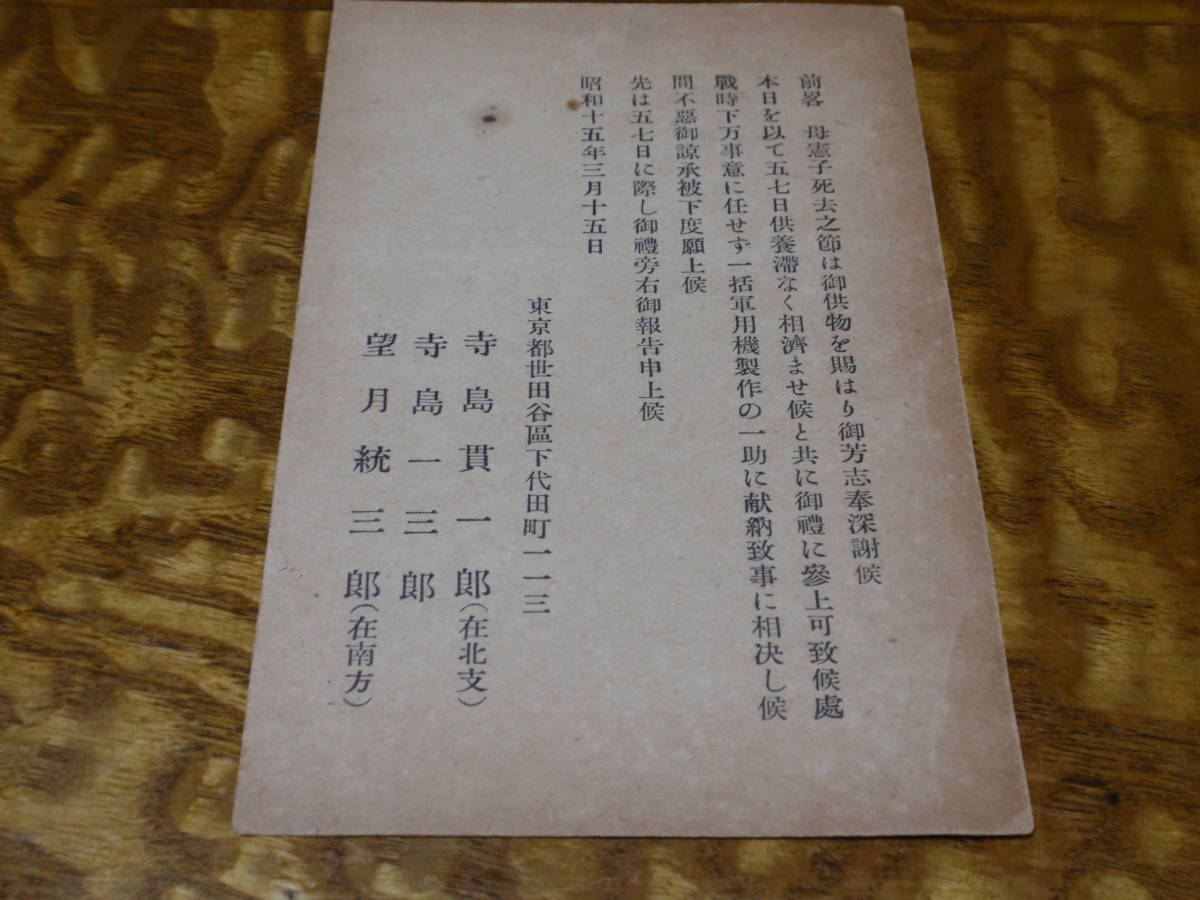 前畧　母憲子死去之節は御供物を賜はり御芳志奉深謝候
本日を以て五七日供養滯なく相濟ませ候と共に御禮に參上可致候處
戰時下万事意に任せず一括軍用機製作の一助に献納致事に相決し候
間不惡御諒承被下度願上候
先は五七日に際し御禮旁右御報告申上候
昭和十五年三月十五日
東京都世田谷區下代田町一一三
寺島貫一郎（在北支）
寺島一三郎
望月統三郎（在南方）